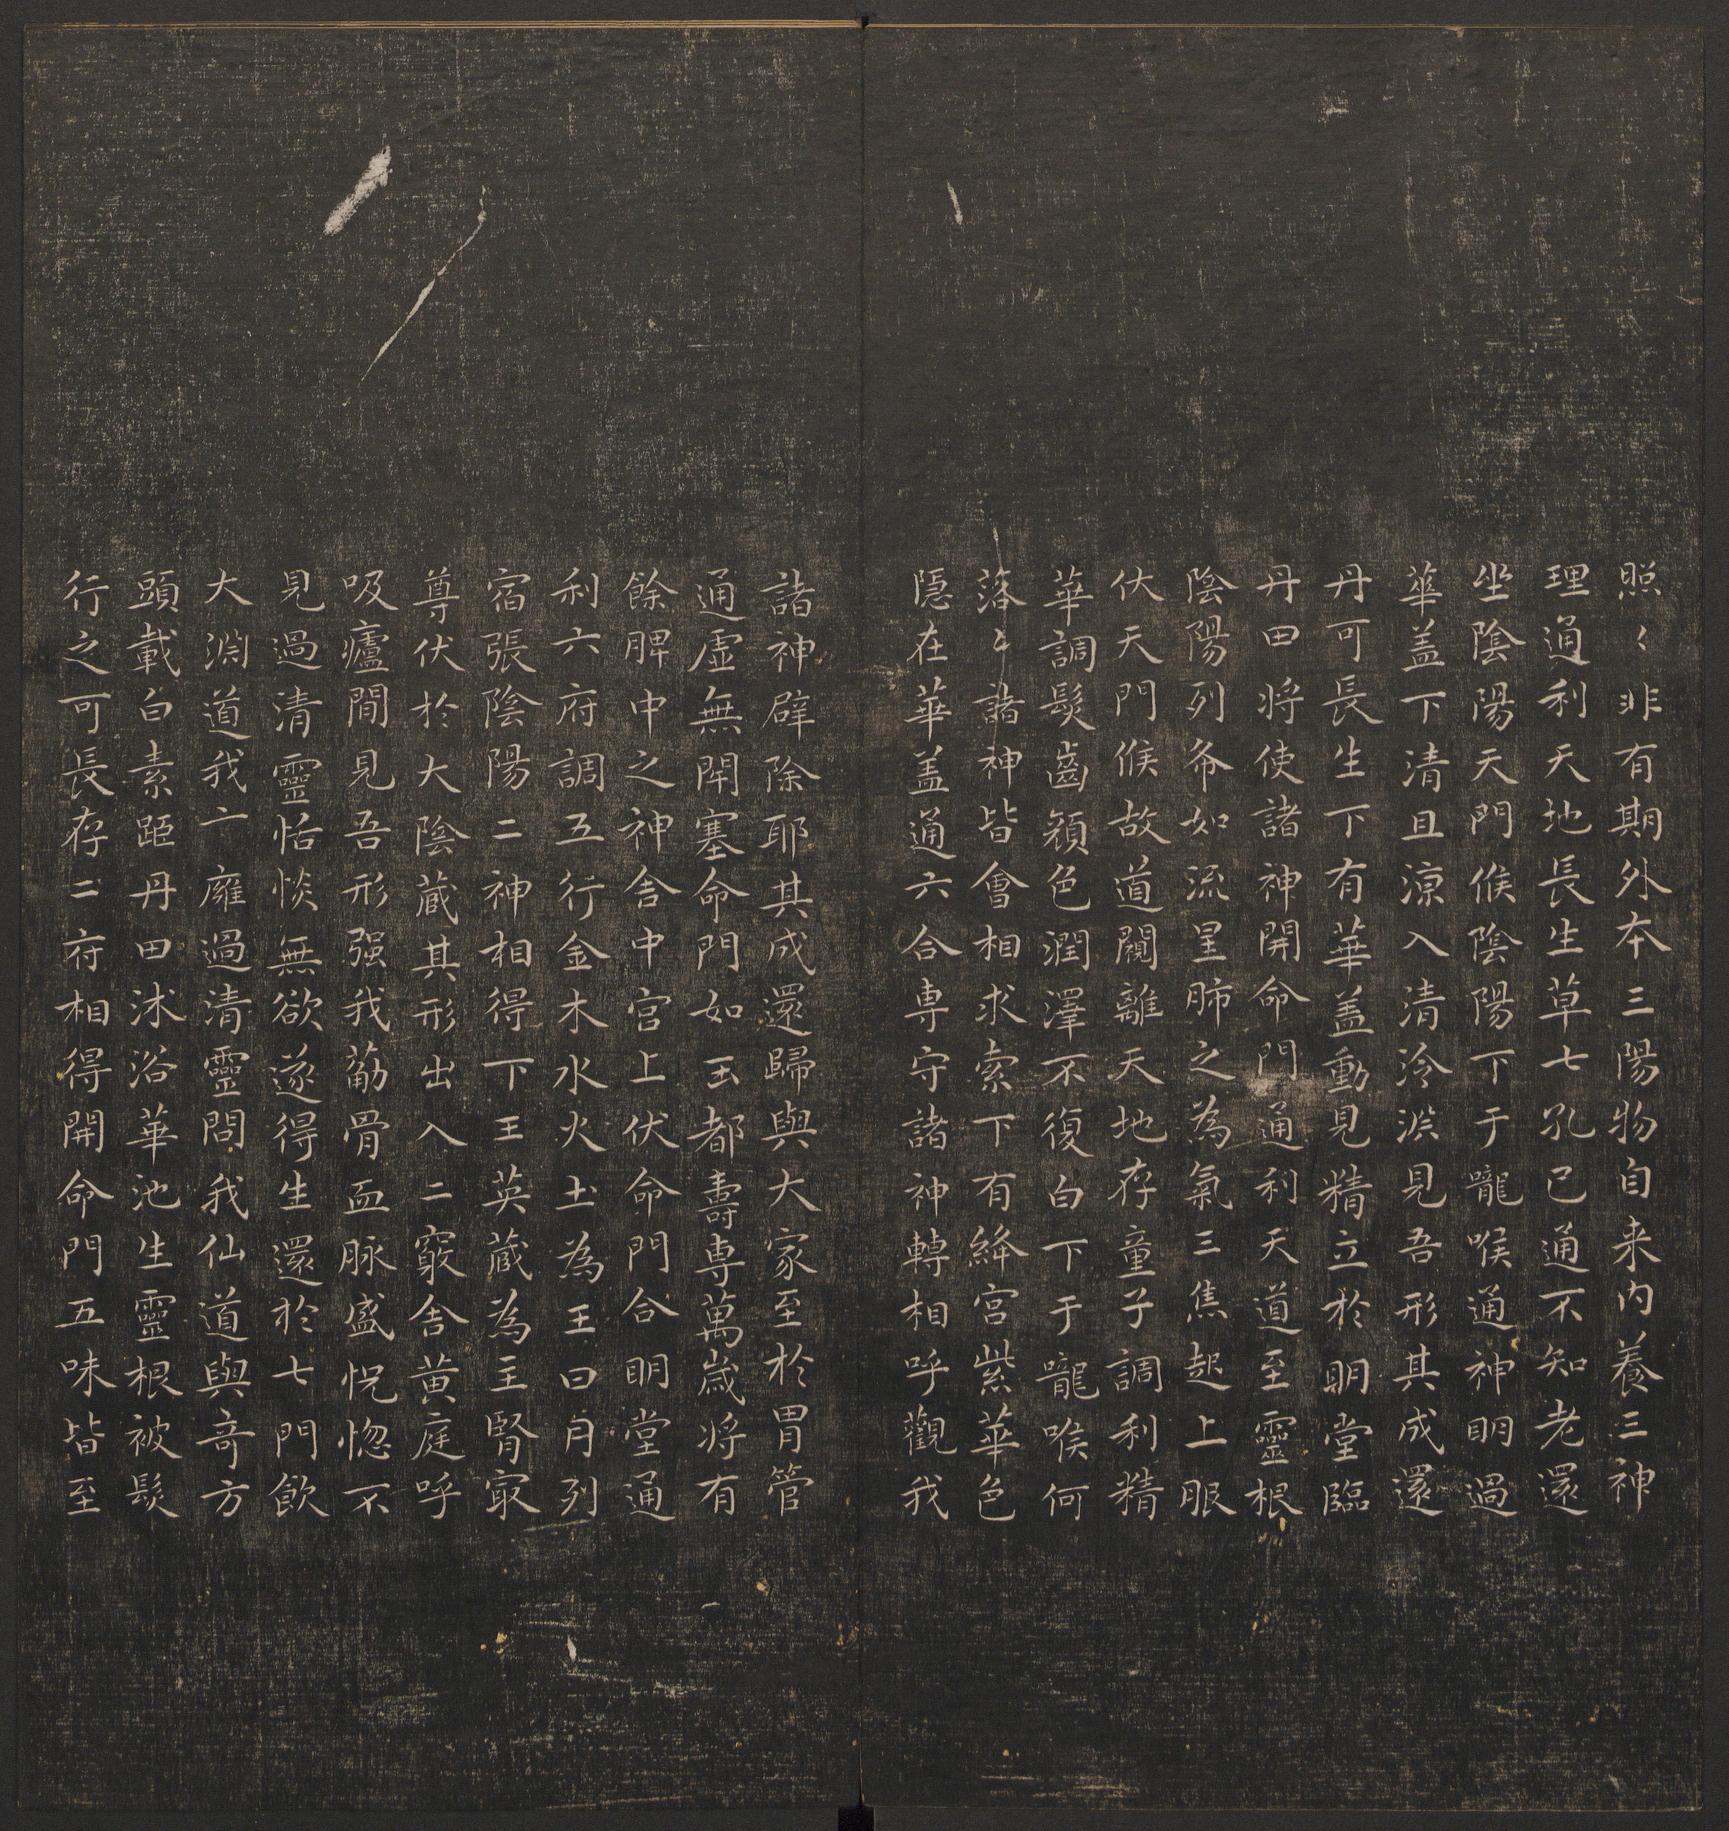 照〻非有期外本三陽物自来內養三神
理通利天地長生草七孔已通不知老還
坐陰陽天門候陰陽下于嚨喉通神明過
華盖下清且涼入清泠淵見吾形其成還
丹可長生下有華盖動見精立於明堂臨
丹田将使諸神開命門通利天道至靈根
陰陽列布如流星肺之為氣三焦起上服
伏天門候故道闚離天地存童子調利精
華調髮齒顏色潤澤不復白下于嚨喉何
落〻諸神皆會相求索下有絳宮紫華色
隱在華盖通六合専守諸神轉相呼觀我
諸神辟除耶其成還歸與大家至於胃管
通虛無閇塞命門如玉都壽専萬歲将有
餘脾中之神舍中宮上伏命門合明堂通
利六府調五行金木水火土為王日月列
宿張陰陽二神相得下玉英藏為主腎㝡
尊伏於大陰藏其形出入二竅舍黄庭呼
吸廬間見吾形强我筋骨血脉盛怳惚不
見過清靈恬惔無欲遂得生還於七門飲
大淵道我亠廱過清靈問我仙道與奇方
頭載白素距丹田沐浴華池生靈根被髮
行之可長存二府相得開命門五味皆至